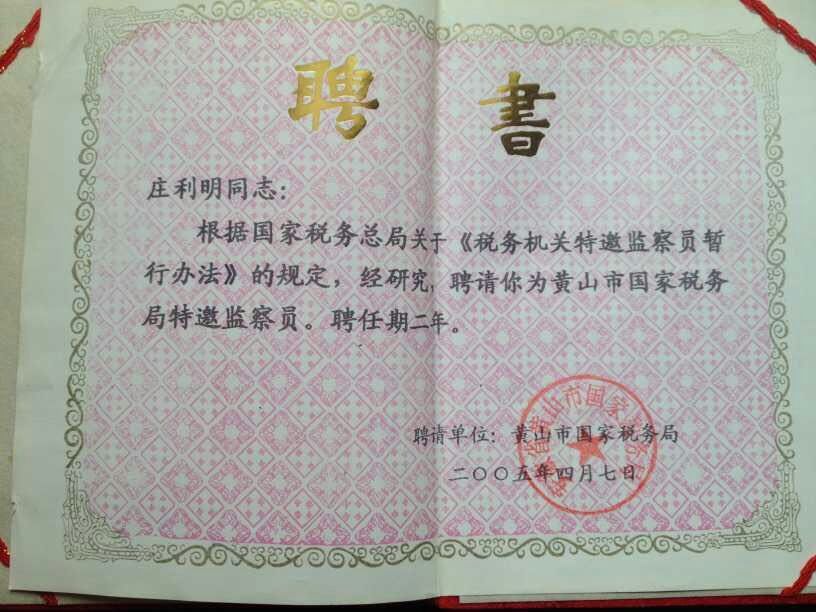 聘书
庄利明同志：
根据国家税务总局关于《税务机关特邀监察员暂
行办法》的规定，经研究，聘请你为黄山市国家税务
局特邀监察员。聘任期二年。
聘请单位：黄山市国家税务局
二〇〇五年四月七日